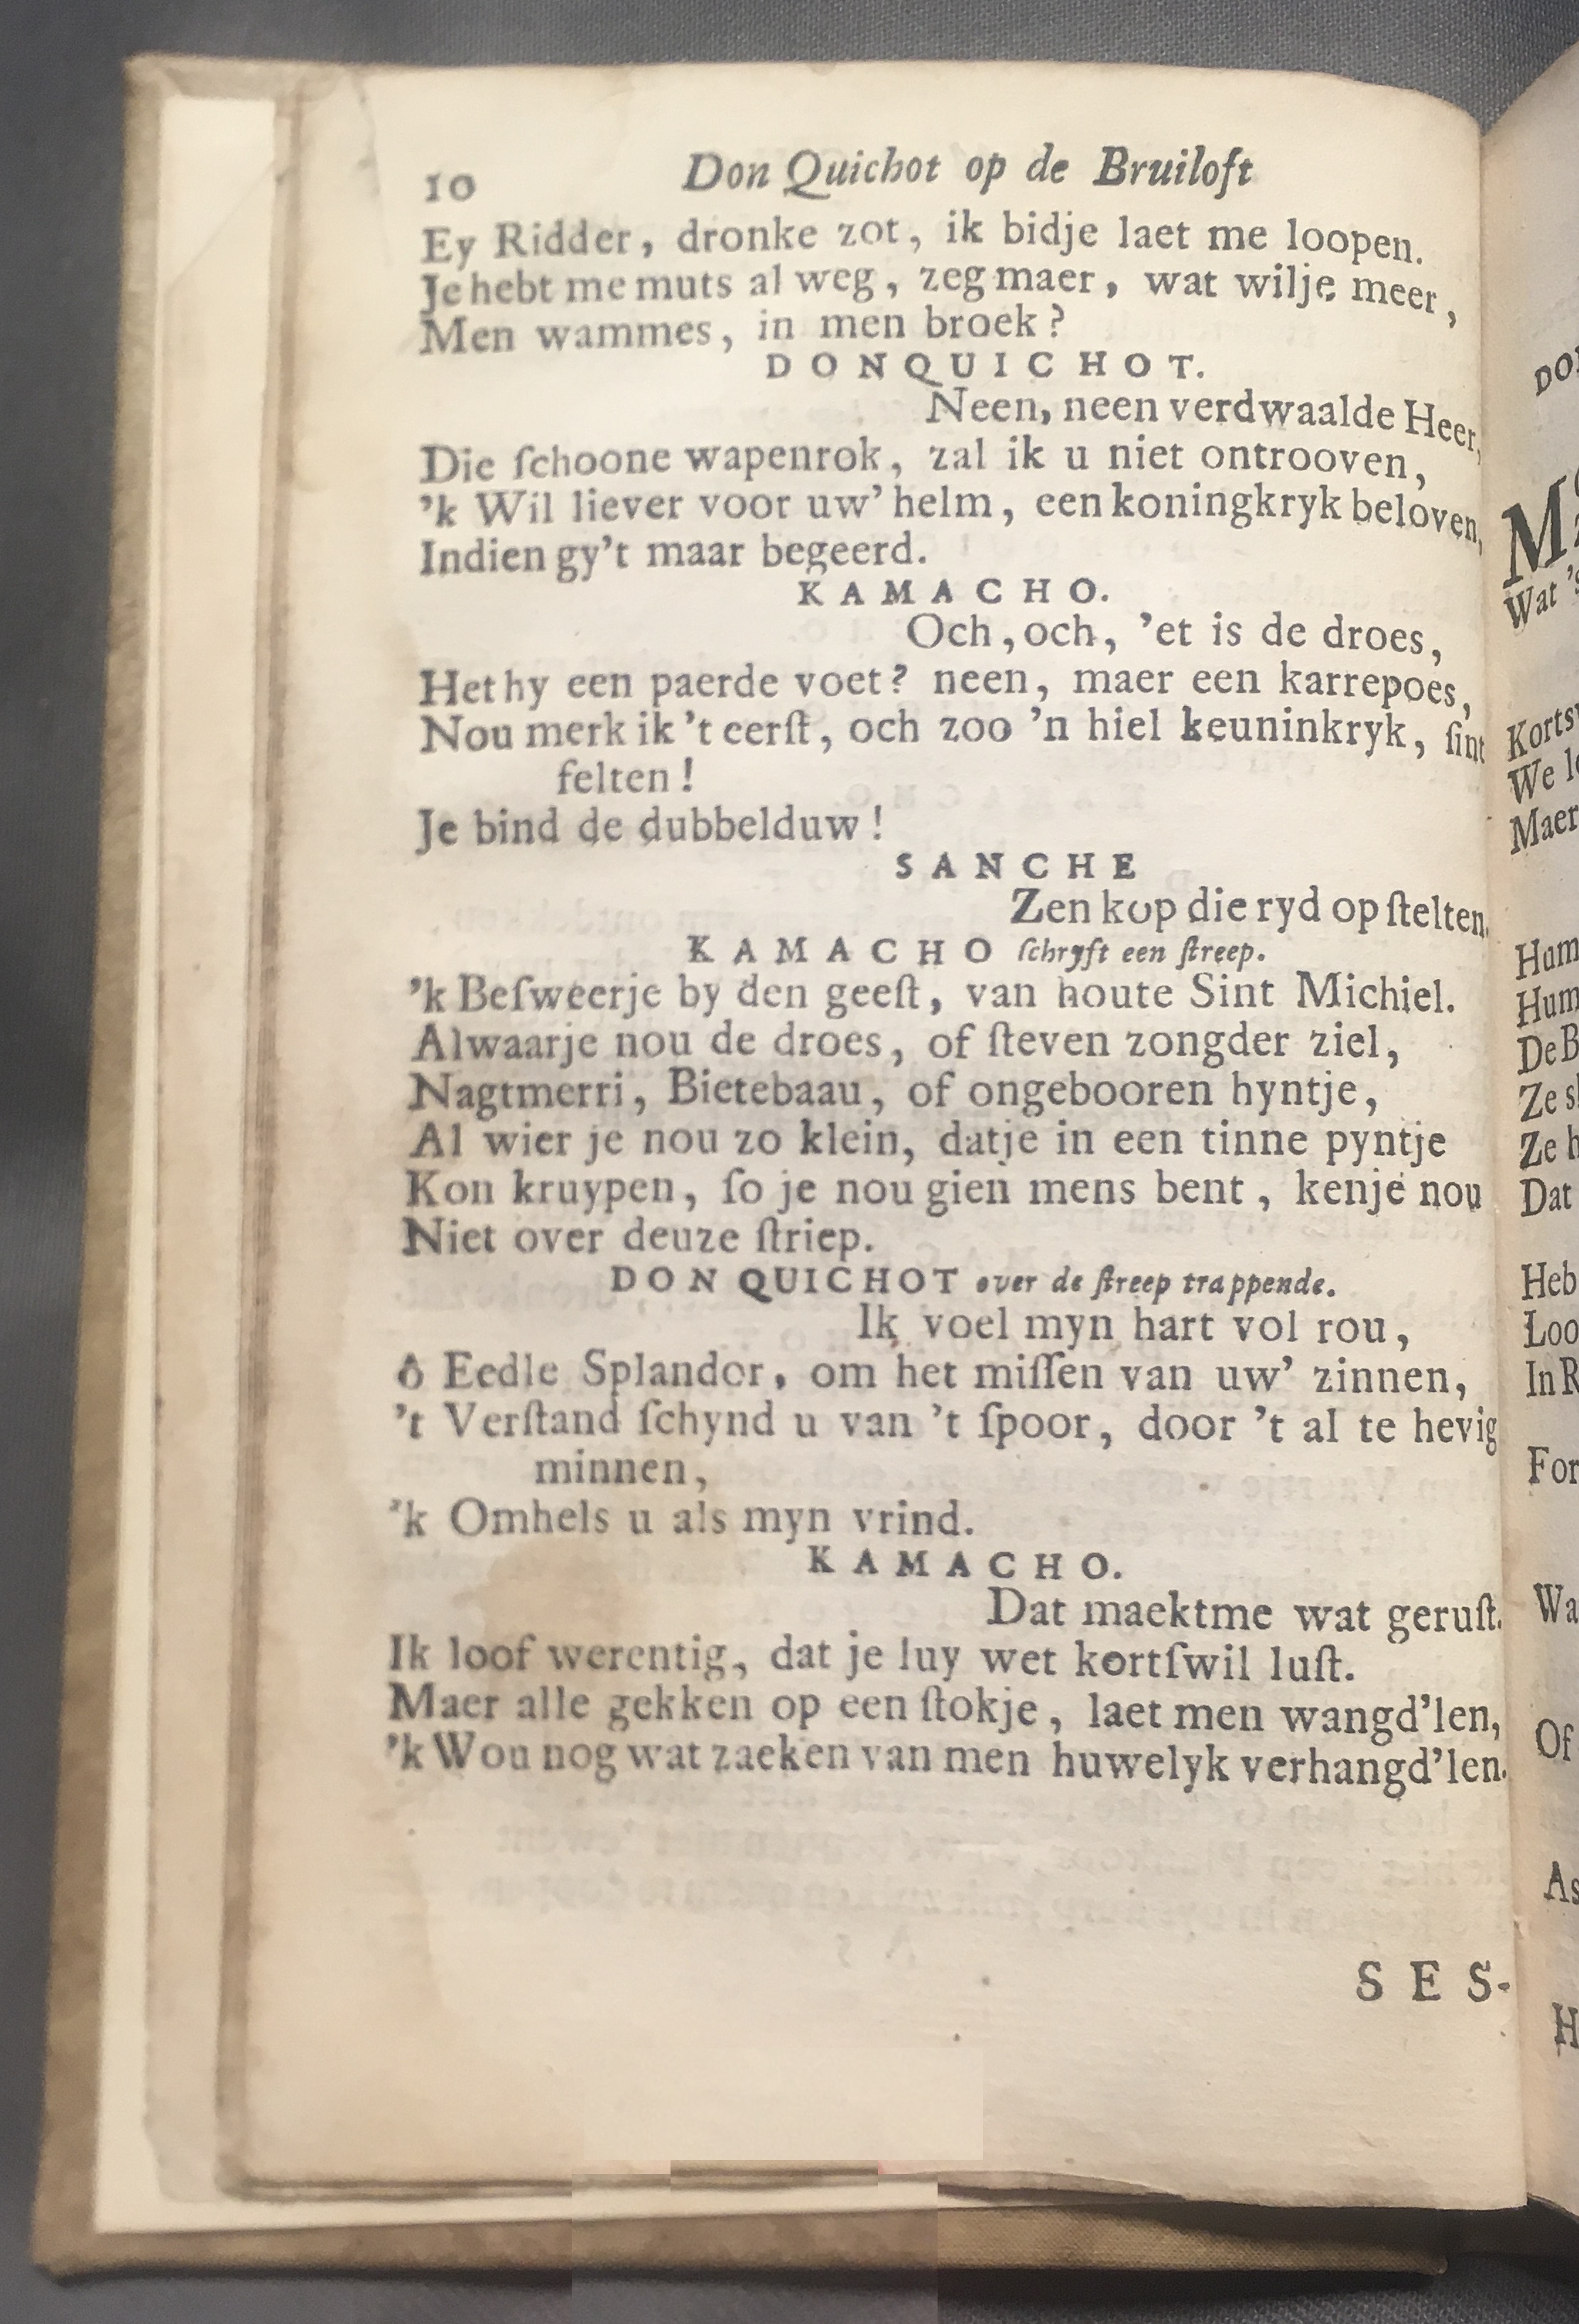 10 Don Quichot op de Bruiloft
Ey Ridder, dronke zot, ik bidje laet me loopen.
Je hebt me muts al weg, zeg maer, wat wilje meer,
Men wammes, in men broek?
DON QUICHOT.
Neen, neen verdwaalde Heer,
Die ſchoone wapenrok, zal ik u niet ontrooven,
'k Wil liever voor uw' helm, een koningkryk beloven,
Indien gy't maar begeerd.
KAMACHO.
Och, och, 'et is de droes,
Het hy een paerde voet? neen, maer een karrepoes,
Nou merk ik 't eerſt, och zoo 'n hiel keuninkryk, ſint
felten!
Je bind de dubbelduw!
SANCHE
Zen kop die ryd op ſtelten.
KAMACHO ſchryft een ſtreep.
'k Beſweerje by den geeſt, van houte Sint Michiel.
Alwaarje nou de droes, of ſteven zongder ziel,
Nagtmerri, Bietebaau, of ongebooren hyntje,
Al wier je nou zo klein, datje in een tinne pyntje
Kon kruypen, ſo je nou gien mens bent, kenje nou
Niet over deuze ſtriep.
DON QUICHOT over de ſtreep trappende.
Ik voel myn hart vol rou,
ô Eedle Splandor, om het miſſen van uw' zinnen,
't Verſtand ſchynd u van 't ſpoor, door 't al te hevig
minnen,
'k Omhels u als myn vrind.
KAMACHO.
Dat maektme wat geruſt.
Ik loof werentig, dat je luy wet kortſwil luſt.
Maer alle gekken op een ſtokje, laet men wangd'len,
'k Wou nog wat zaeken van men huwelyk verhangd'len.
SES-
M
Wat
We
Maer
Hum
Hum
De B
Ze
Ze
Dat
Heb
Loo
In R
For
Wa
Of
As
H